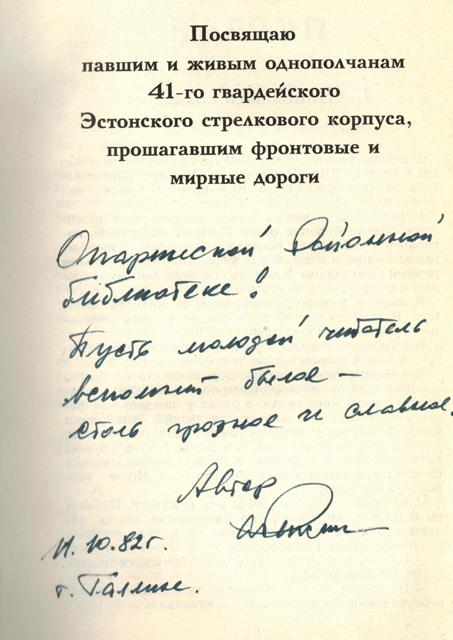 Посвящаю
павшим и живым однополчанам
41-го гвардейского
Эстонского стрелкового корпуса,
прошагавшим фронтовые и
мирные дороги
районной
библиотеке!
Пусть молодой читатель
вспомнит былое –
столь грозное и славное.
Автор
11.10.82г.
г. Таллин.